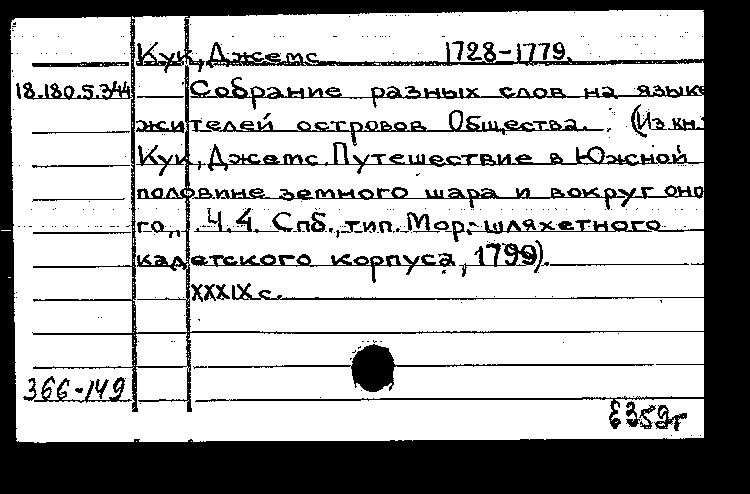 Кук, Джемс 1728-1779.
18.180.5.344 Собрание разных слов на языке
жителей островов Общества. (Из кн.:
Кук, Джемс. Путешествие в Южной
половине земного шара и вокруг оно
го,, Ч.4. Спб., тип. Мор. шляхетного
кадетского корпуса, 1799).
XXXIX с.
366-149